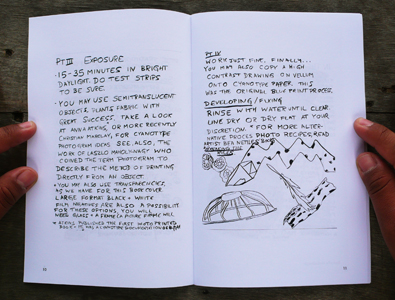 PT III EXPOSURE
• 15-35 MINUTES IN BRIGHT
DAYLIGHT. DO TEST STRIPS
TO BE SURE.
• YOU MAY USE SEMITRANSLUCENT
OBJECTS, PLANTS, FABRIC WITH
GREAT SUCCESS. TAKE A LOOK
AT ANNA ATKINS, OR MORE RECENTLY
CHRISTIAN MARCLAY, FOR CYANOTYPE
PHOTOGRAM IDEAS. SEE, ALSO, THE
WORK OF LASZLO MOHOLY-NAGY WHO
COINED THE TERM PHOTOGRAM TO
DESCRIBE THE METHOD OF PRINTING
DIRECTLY FROM AN OBJECT.
• YOU MAY ALSO USE TRANSPARENCIES,
AS WE HAVE FOR THIS BOOK COVER.
LARGE FORMAT BLACK + WHITE
FILM NEGATIVES ARE ALSO A POSSIBILITY.
FOR THESE OPTIONS, YOU WILL
NEED GLASS + A FRAME
ATKINS PUBLISHED THE FIRST PHOTO PRINTED
BOOK - IT WAS A CYANOTYPE DOCUMENTATION
PT IV
WORK JUST FINE. FINALLY...
YOU MAY ALSO COPY A HIGH
CONTRAST DRAWING ON VELLUM
ONTO CYANOTYPE PAPER. THIS
WAS THE ORIGINAL BLUE PRINT PROCESS.
DEVELOPING / FIXING
RINSE WITH WATER UNTIL CLEAR.
LINE DRY OR DRY FLAT AT YOUR
DISCRETION. * FOR MORE ALTER-
NATIVE PROCESS PHOTO RECIPES, READ
ARTIST BEA NETTLES BOOK